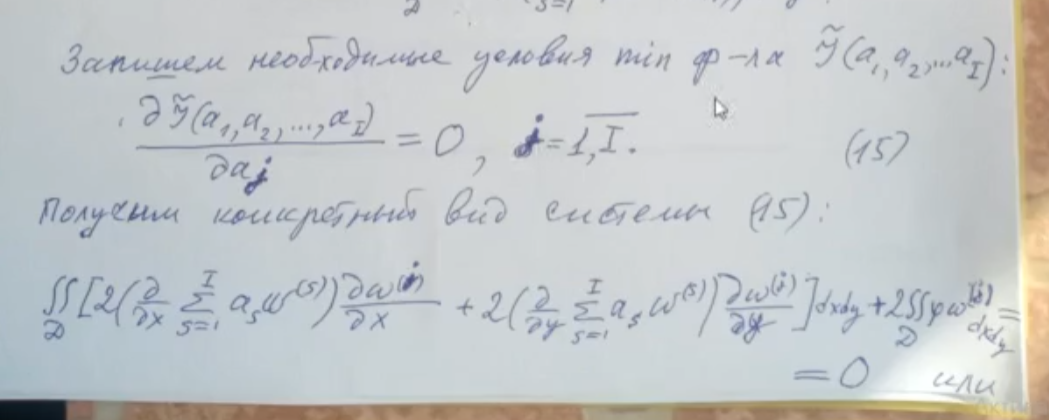 Запишем необходимые условия min ф-ла J̃(a₁, a₂, ... a_I):
∂J̃(a₁, a₂, ..., a_I) / ∂a_j = 0, j = 1, I. (15)
Получим конкретный вид системы (15):
∬_D [2(∂/∂x ∑_{s=1}^{I} a_s ω^{(s)}) ∂ω^{(j)}/∂x + 2(∂/∂y ∑_{s=1}^{I} a_s ω^{(s)}) ∂ω^{(j)}/∂y] dxdy + 2∬_D φω^{(j)} dxdy =
= 0 или